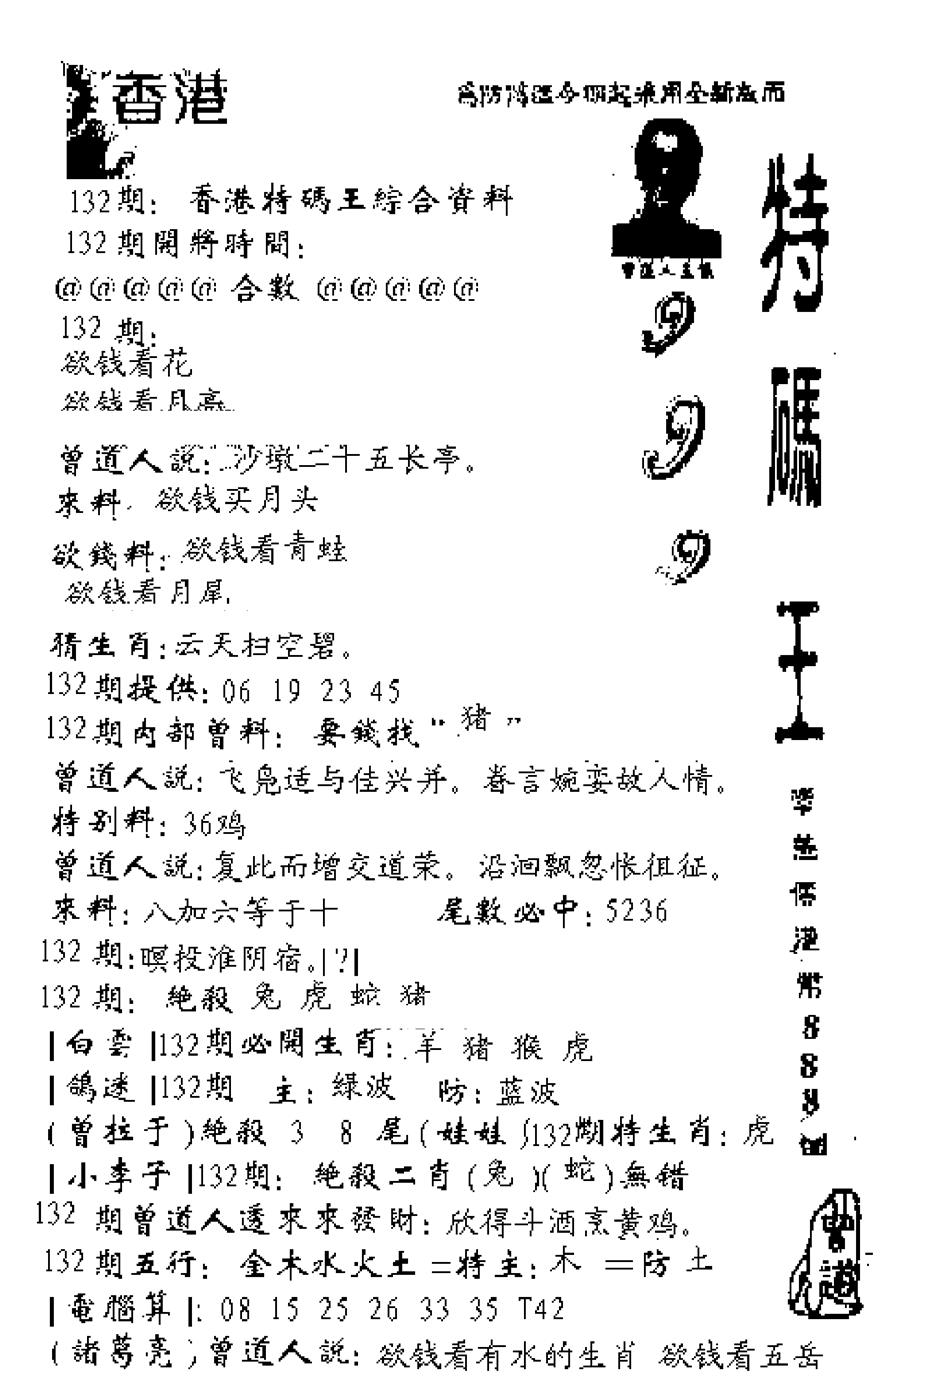 香港
132期：香港特碼王綜合資料
132期開將時間：
@@@@@ 合數 @@@@@
132 期：
欲钱看花
欲钱看月亮
曾道人説：沙墩二十五长亭。
來料：欲钱买月头
欲錢料：欲钱看青蛙
欲钱看月犀
猜生肖：云天扫空碧。
132期提供：06 19 23 45
132期内部曾料：要錢找“猪”
曾道人説：飞凫适与佳兴并。眷言婉娈故人情。
特别料：36鸡
曾道人説：复此而增交道荣。沿洄飘忽怅徂征。
來料：八加六等于十 尾數必中：5236
132期：暝投淮阴宿。|?|
132期：絶殺 兔 虎 蛇 猪
|白雲|132期必開生肖：羊 猪 猴 虎
|鴿迷|132期 主：绿波 防：蓝波
(曾拉于)絶殺 3 8 尾(娃娃)132期特生肖：虎
|小李子|132期：絶殺二肖(兔)(蛇)無错
132期曾道人透來來發財：欣得斗酒烹黄鸡。
132期五行：金木水火土=特主：木 =防 土
|電腦算|：08 15 25 26 33 35 T42
(諸葛亮)曾道人説：欲钱看有水的生肖 欲钱看五岳
為防 今期起采用全新版面
曾道人主
9
9
9
特碼王
港幣888
曾道